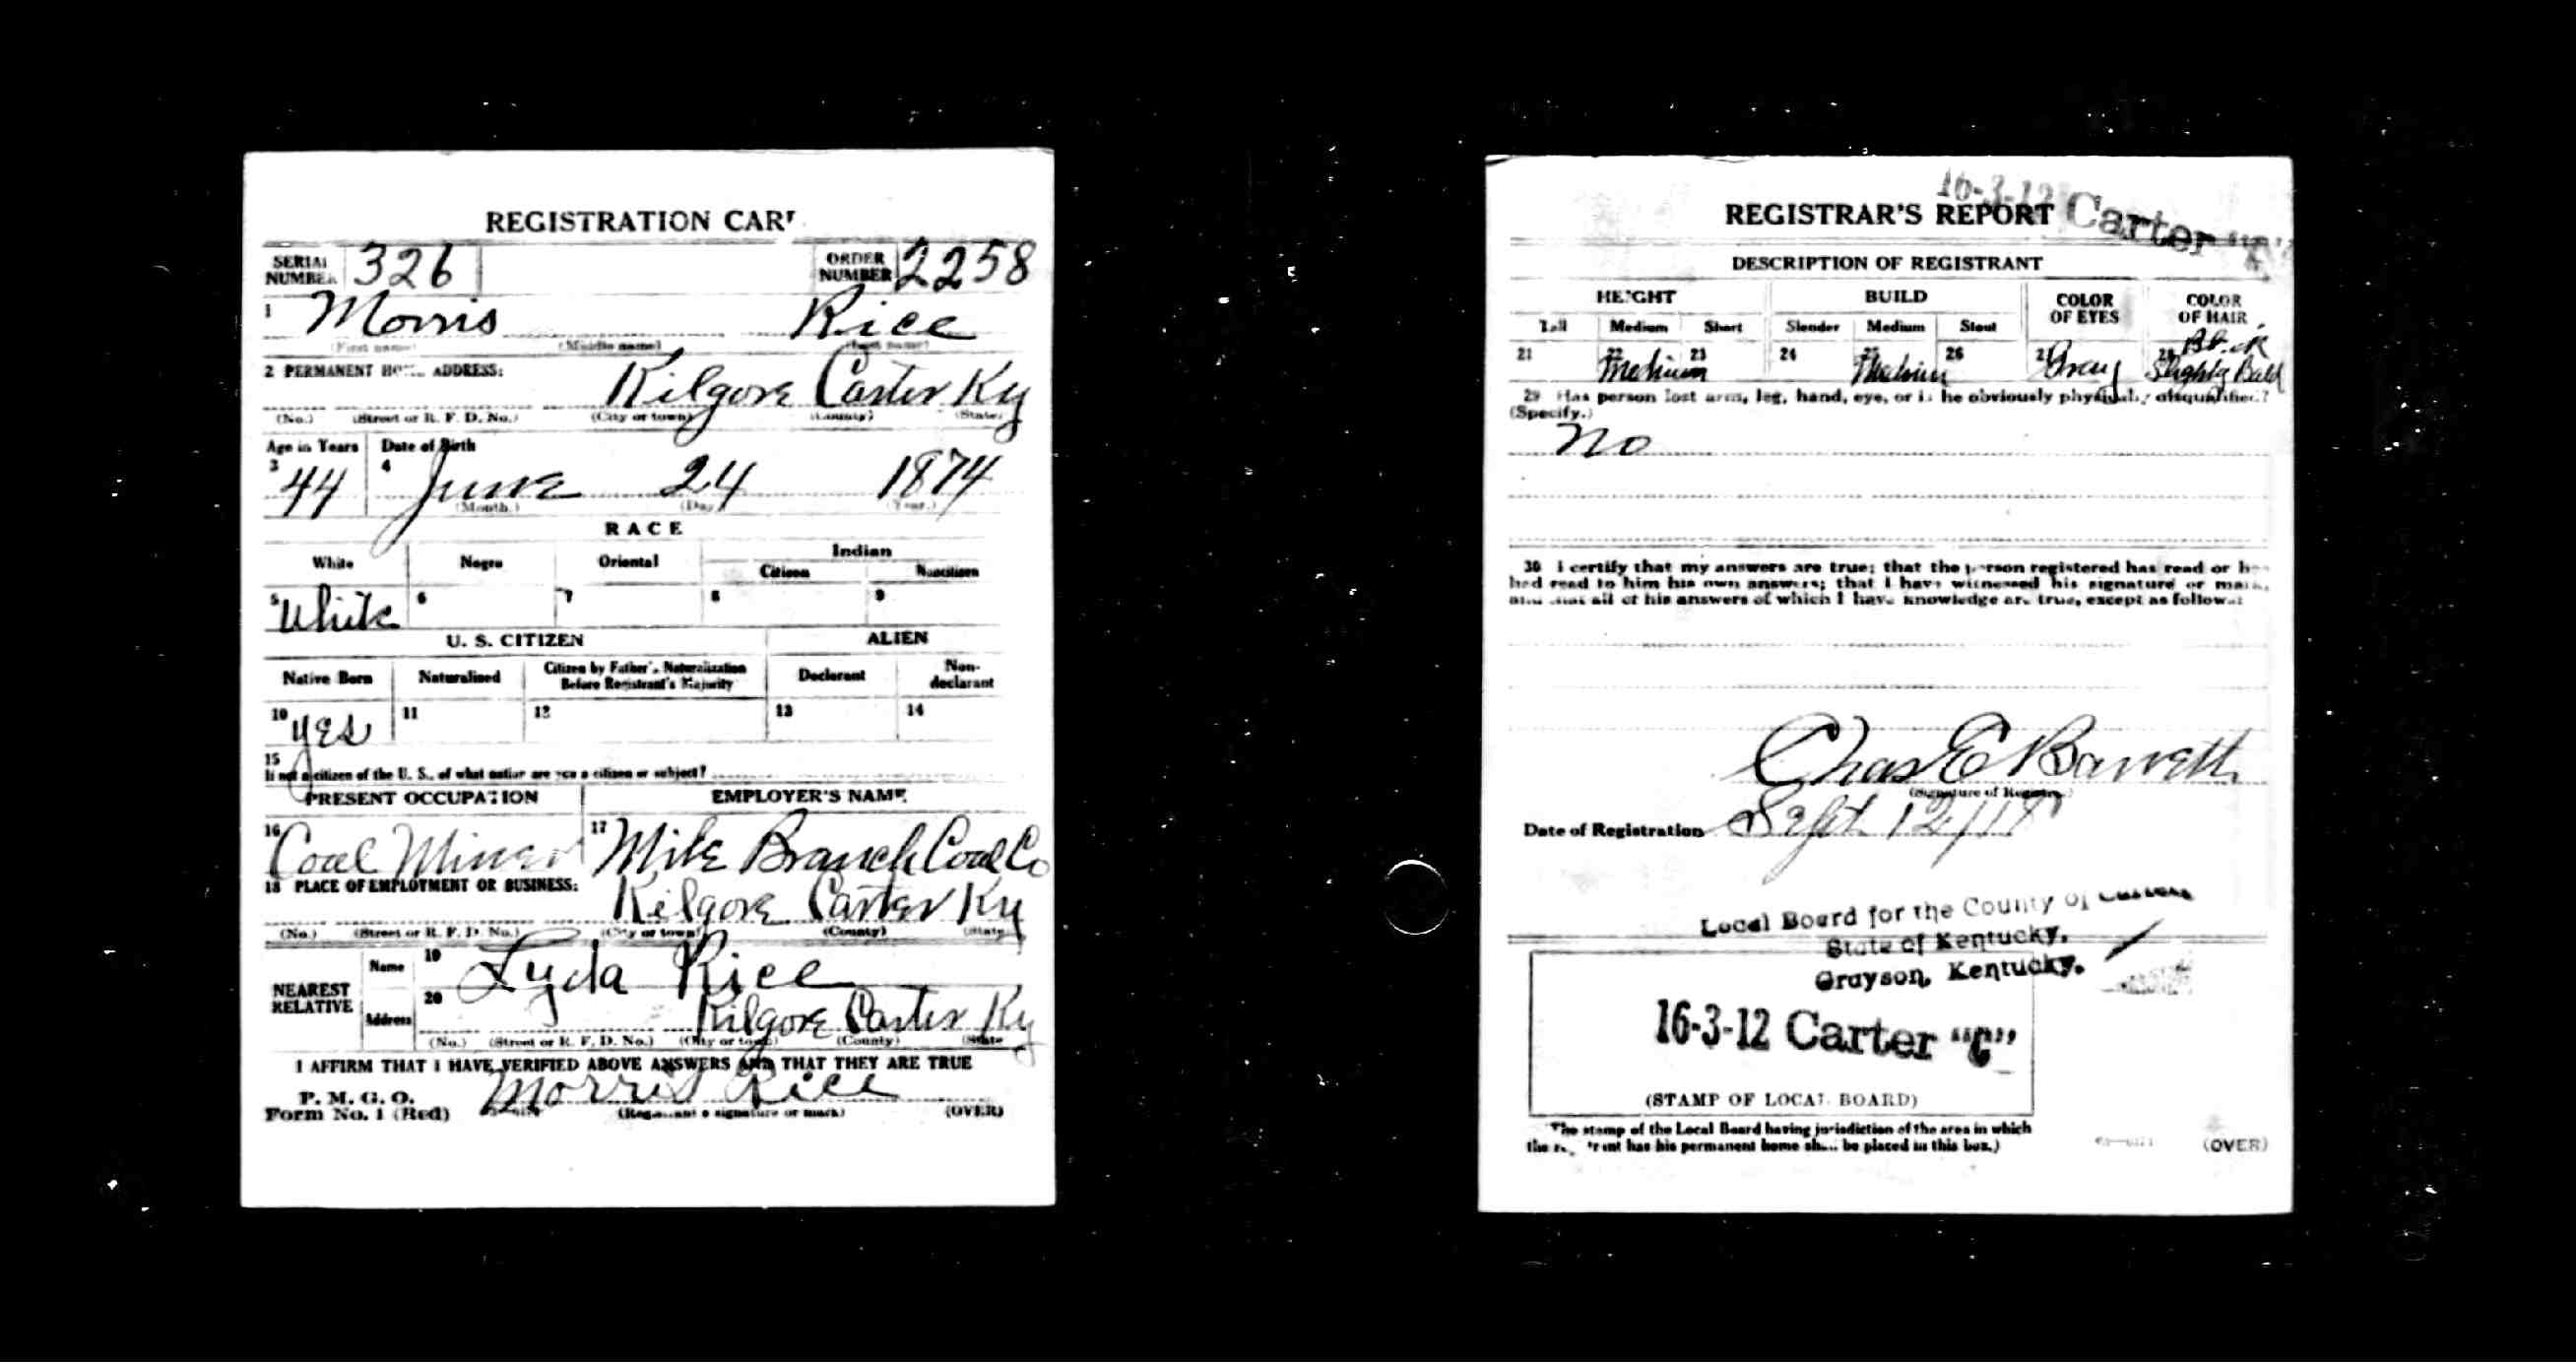 REGISTRATION CAR
SERIAL NUMBER 326 ORDER NUMBER 2258
1 Morris Rice
(First name) (Middle name) (Last name)
2 PERMANENT HOME ADDRESS:
Kilgore Carter Ky
(No.) (Street or R. F. D. No.) (City or town) (County) (State)
Age in Years Date of Birth
3 44 4 June 24 1874
(Month.) (Day.) (Year.)
RACE
White Negro Oriental Indian
Citizen Noncitizen
5 White 6 7 8 9
U. S. CITIZEN ALIEN
Native Born Naturalized Citizen by Father's Naturalization Before Registrant's Majority Declarant Non-declarant
10 yes 11 12 13 14
15
If not a citizen of the U. S., of what nation are you a citizen or subject?
PRESENT OCCUPATION EMPLOYER'S NAME
16 Coal Miner 17 Mile Branch Coal Co
18 PLACE OF EMPLOYMENT OR BUSINESS:
Kilgore Carter Ky
(No.) (Street or R. F. D. No.) (City or town) (County) (State)
NEAREST RELATIVE
Name 19 Lyda Rice
Address 20 Kilgore Carter Ky
(No.) (Street or R. F. D. No.) (City or town) (County) (State
I AFFIRM THAT I HAVE VERIFIED ABOVE ANSWERS AND THAT THEY ARE TRUE
P. M. G. O.
Form No. 1 (Red) Morris Rice
(Registrant's signature or mark) (OVER)
16-3-12 Carter "C"
REGISTRAR'S REPORT
DESCRIPTION OF REGISTRANT
HEIGHT BUILD COLOR OF EYES COLOR OF HAIR
Tall Medium Short Slender Medium Stout
21 22 Medium 23 24 25 Medium 26 27 Gray 28 Black Slightly Bald
29 Has person lost arm, leg, hand, eye, or is he obviously physically disqualified?
(Specify.)
No
30 I certify that my answers are true; that the person registered has read or has
had read to him his own answers; that I have witnessed his signature or mark,
and that all of his answers of which I have knowledge are true, except as follows:
Chas E Barrett
(Signature of Registrar)
Date of Registration Sept 12/18
Local Board for the County of Carter,
State of Kentucky,
Grayson, Kentucky.
16-3-12 Carter "C"
(STAMP OF LOCAL BOARD)
The stamp of the Local Board having jurisdiction of the area in which
the registrant has his permanent home shall be placed in this box.)
(OVER)